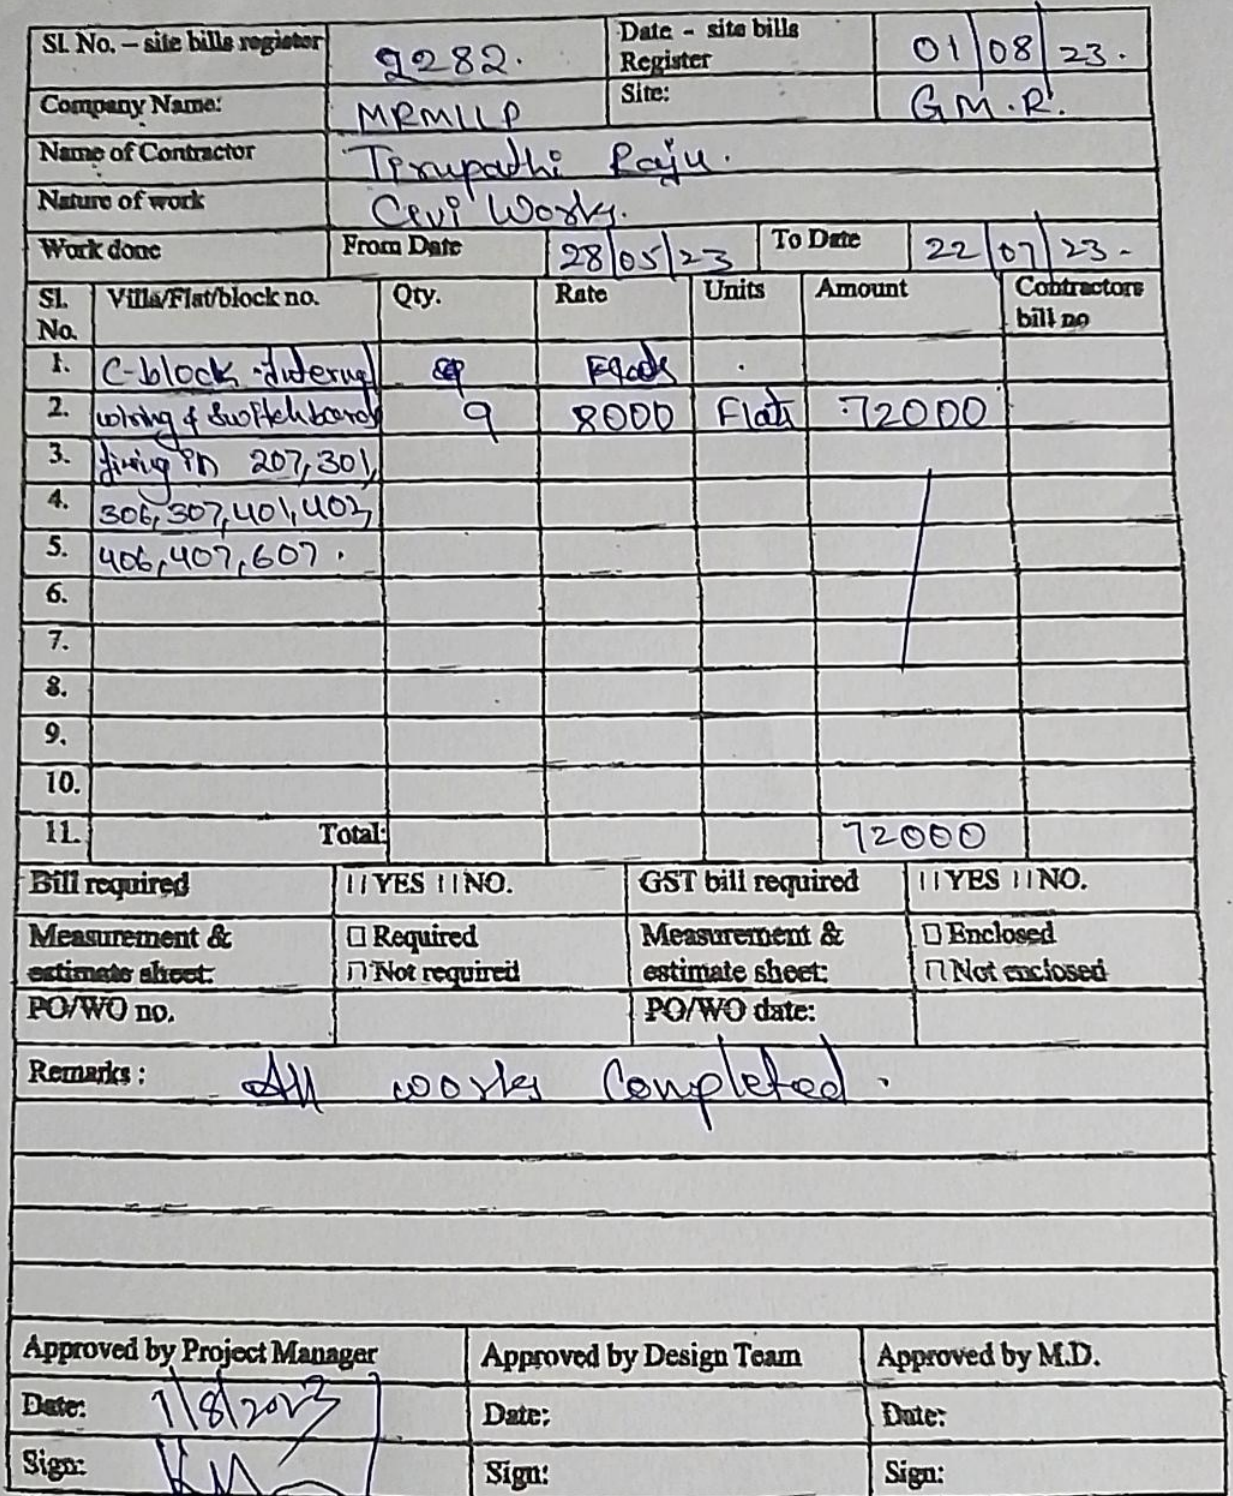 Sl. No. – site bills register 9282. Date - site bills Register 01/08/23.
Company Name: MRMLLP Site: G.M.R.
Name of Contractor Tirupathi Raju.
Nature of work Civi Works.
Work done From Date 28/05/23 To Date 22/07/23-
Sl. No. Villa/Flat/block no. Qty. Rate Units Amount Contractors bill no
1. C-block - Internal
2. wiring & Switch boards 9 8000 Flats 72000
3. fixing in 207, 301,
4. 306, 307, 401, 403,
5. 406, 407, 607.
6.
7.
8.
9.
10.
11. Total: 72000
Bill required YES NO. GST bill required YES NO.
Measurement & estimate sheet: □ Required □ Not required Measurement & estimate sheet: □ Enclosed □ Not enclosed
PO/WO no. PO/WO date:
Remarks: All works Completed.
Approved by Project Manager Approved by Design Team Approved by M.D.
Date: 1/8/2023 Date: Date:
Sign: Sign: Sign: